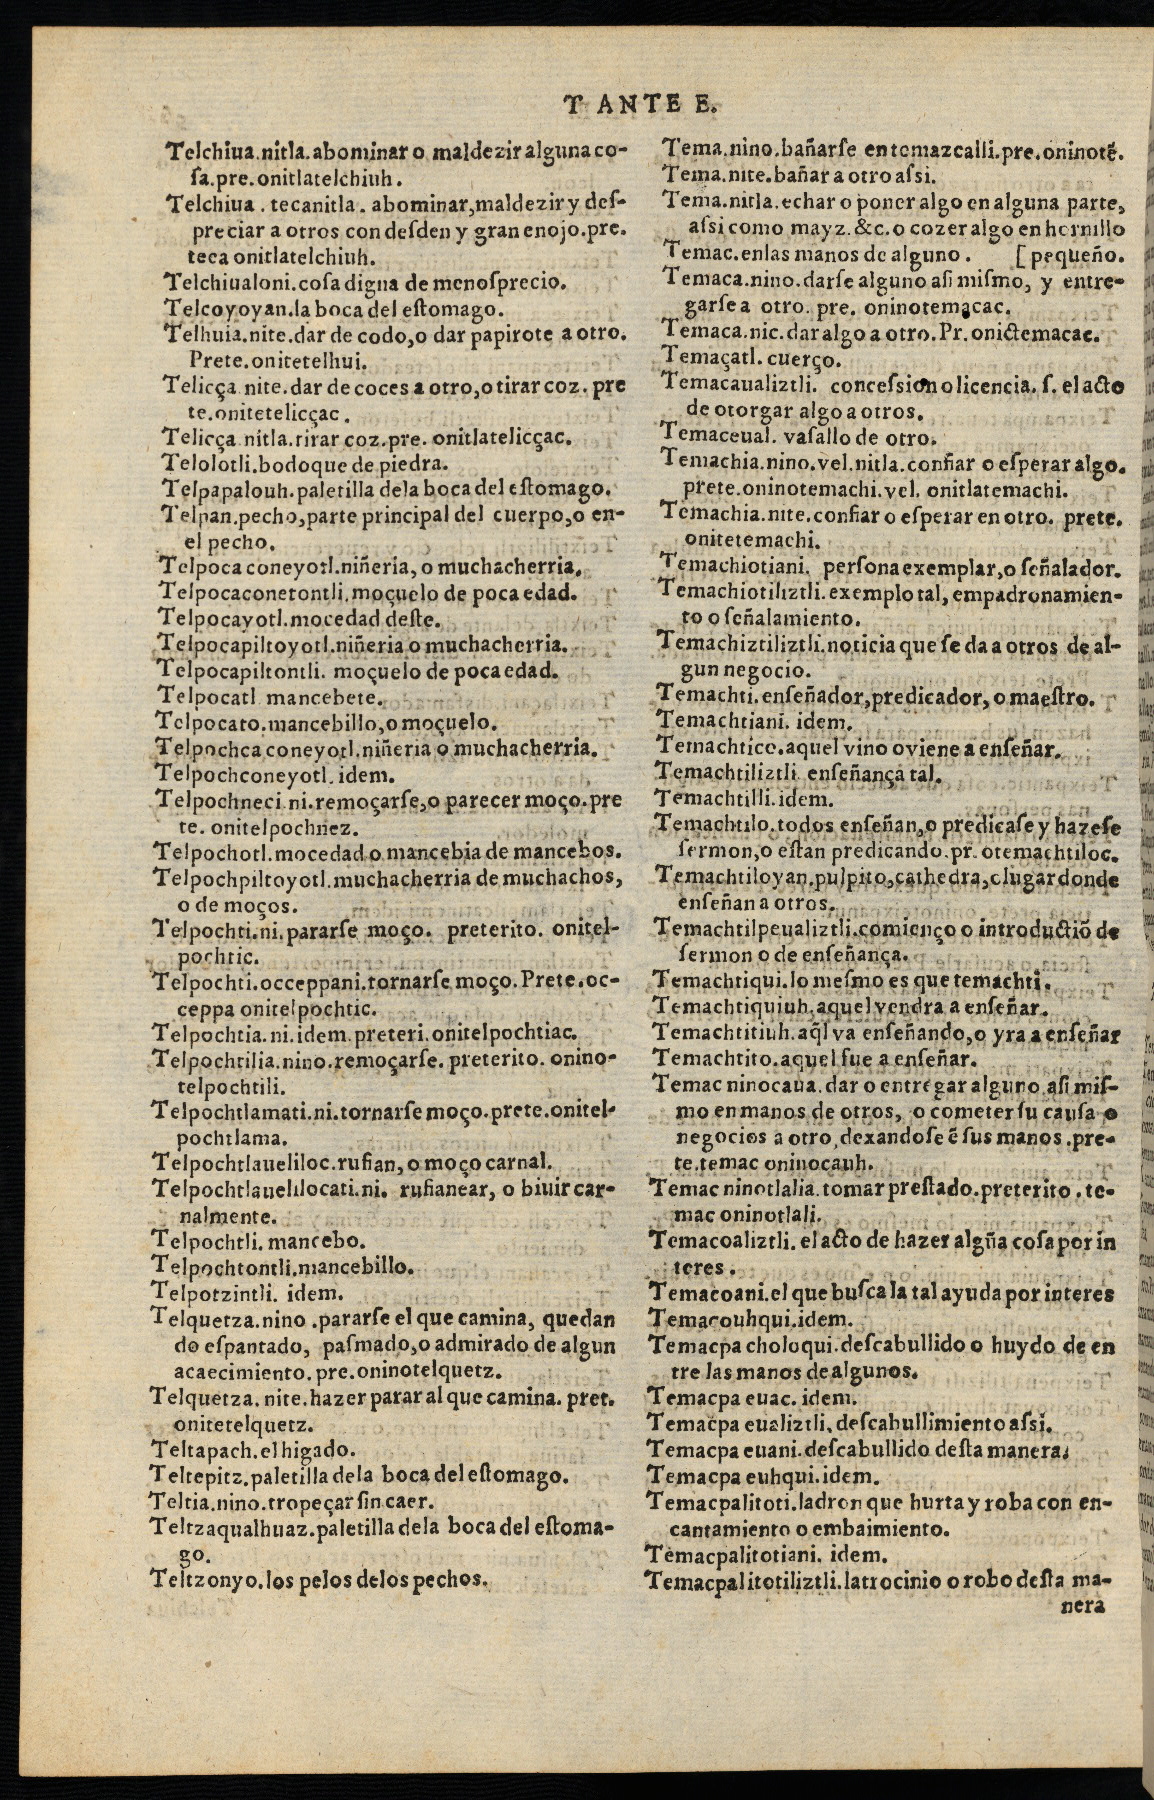 T ANTE E.
Telchiua.nitla.abominar o maldezir alguna co-
ſa.pre.onitlatelchiuh.
Telchiua . tecanitla . abominar,maldezir y deſ-
preciar a otros con deſden y gran enojo.pre.
teca onitlatelchiuh.
Telchiualoni.coſa digna de menoſprecio.
Telcoyoyan.la boca del eſtomago.
Telhuia.nite.dar de codo,o dar papirote a otro.
Prete.onitetelhui.
Telicça.nite.dar de coces a otro,o tirar coz. pre
te.onitetelicçac.
Telicça.nitla.tirar coz.pre. onitlatelicçac.
Telolotli.bodoque de piedra.
Telpapalouh.paletilla dela boca del eſtomago.
Telpan.pecho,parte principal del cuerpo,o en-
el pecho.
Telpoca coneyotl.niñeria, o muchacherria.
Telpocaconetontli.moçuelo de poca edad.
Telpocayotl.mocedad deſte.
Telpocapiltoyotl.niñeria o muchacherria.
Telpocapiltontli. moçuelo de poca edad.
Telpocatl mancebete.
Telpocato.mancebillo,o moçuelo.
Telpochca coneyotl.niñeria o muchacherria.
Telpochconeyotl.idem.
Telpochneci.ni.remoçarſe,o parecer moço.pre
te. onitelpochnez.
Telpochotl.mocedad o mancebia de mancebos.
Telpochpiltoyotl.muchacherria de muchachos,
o de moços.
Telpochti.ni.pararſe moço. preterito. onitel-
pochtic.
Telpochti.occeppani.tornarſe moço.Prete.oc-
ceppa onitelpochtic.
Telpochtia.ni.idem.preteri.onitelpochtiac.
Telpochtilia.nino.remoçarſe.preterito. onino-
telpochtili.
Telpochtlamati.ni.tornarſe moço.prete.onitel-
pochtlama.
Telpochtlaueliloc.rufian, o moço carnal.
Telpochtlauelilocati.ni. rufianear, o biuir car-
nalmente.
Telpochtli.mancebo.
Telpochtontli.mancebillo.
Telpotzintli. idem.
Telquetza.nino .pararſe el que camina, quedan
do eſpantado, paſmado,o admirado de algun
acaecimiento.pre.oninotelquetz.
Telquetza. nite.hazer parar al que camina. pret.
onitetelquetz.
Teltapach.el higado.
Teltepitz.paletilla dela boca del eſtomago.
Teltia.nino.tropeçar ſin caer.
Teltzaqualhuaz.paletilla dela boca del eſtoma-
go.
Teltzonyo.los pelos delos pechos.
Tema.nino.bañarſe en temazcalli.pre.oninotẽ.
Tema.nite.bañar a otro aſsi.
Tema.nitla.echar o poner algo en alguna parte,
aſsi como mayz.&c.o cozer algo en hornillo
Temac.enlas manos de alguno . [pequeño.
Temaca.nino.darſe alguno aſi miſmo, y entre-
garſe a otro. pre. oninotemacac.
Temaca.nic.dar algo a otro.Pr.onictemacac.
Temaçatl. cuerço.
Temacaualiztli. conceſsion o licencia. ſ. el acto
de otorgar algo a otros.
Temaceual. vaſallo de otro.
Temachia.nino.vel.nitla.confiar o eſperar algo.
prete.oninotemachi.vel. onitlatemachi.
Temachia.nite.confiar o eſperar en otro. prete.
onitetemachi.
Temachiotiani. perſona exemplar,o ſeñalador.
Temachiotiliztli.exemplo tal, empadronamien-
to o ſeñalamiento.
Temachiztiliztli.noticia que ſe da a otros de al-
gun negocio.
Temachti.enſeñador,predicador, o maeſtro.
Temachtiani. idem.
Temachtico.aquel vino o viene a enſeñar.
Temachtiliztli enſeñança tal.
Temachtilli.idem.
Temachtilo.todos enſeñan,o predicaſe y hazeſe
ſermon,o eſtan predicando.pr. otemachtiloc.
Temachtiloyan.pulpito,cathedra,o lugar donde
enſeñan a otros.
Temachtilpeualiztli.comienço o introductiõ de
ſermon o de enſeñança.
Temachtiqui.lo meſmo es que temachti.
Temachtiquiuh.aquel vendra a enſeñar.
Temachtitiuh.aq̃l va enſeñando,o yra a enſeñar
Temachtito.aquel fue a enſeñar.
Temac ninocaua.dar o entregar alguno aſi miſ-
mo en manos de otros, o cometer ſu cauſa o
negocios a otro,dexandoſe ẽ ſus manos .pre-
te.temac oninocauh.
Temac ninotlalia.tomar preſtado.preterito . te-
mac oninotlali.
Temacoaliztli.el acto de hazer algũa coſa por in
teres .
Temacoani.el que buſca la tal ayuda por interes
Temacouhqui.idem.
Temacpa choloqui.deſcabullido o huydo de en
tre las manos de algunos.
Temacpa euac. idem.
Temacpa eualiztli.deſcabullimiento aſsi.
Temacpa euani.deſcabullido deſta manera.
Temacpa euhqui.idem.
Temacpalitoti.ladron que hurta y roba con en-
cantamiento o embaimiento.
Temacpalitotiani. idem.
Temacpalitotiliztli.latrocinio o robo deſta ma-
nera